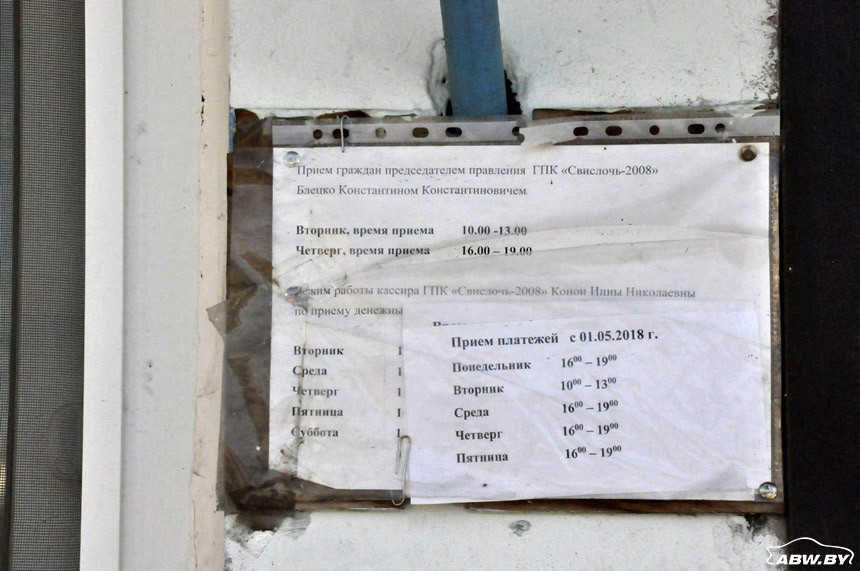 Прием граждан председателем правления ГПК «Свислочь-2008»
Блецко Константином Константиновичем
Вторник, время приема 10.00 -13.00
Четверг, время приема 16.00 – 19.00
работы кассира ГПК «Свислочь-2008» Инны Николаевны
по приему
Вторник
Среда
Четверг
Пятница
Суббота
Прием платежей с 01.05.2018 г.
Понедельник 16⁰⁰ – 19⁰⁰
Вторник 10⁰⁰ – 13⁰⁰
Среда 16⁰⁰ – 19⁰⁰
Четверг 16⁰⁰ – 19⁰⁰
Пятница 16⁰⁰ – 19⁰⁰
ABW.BY